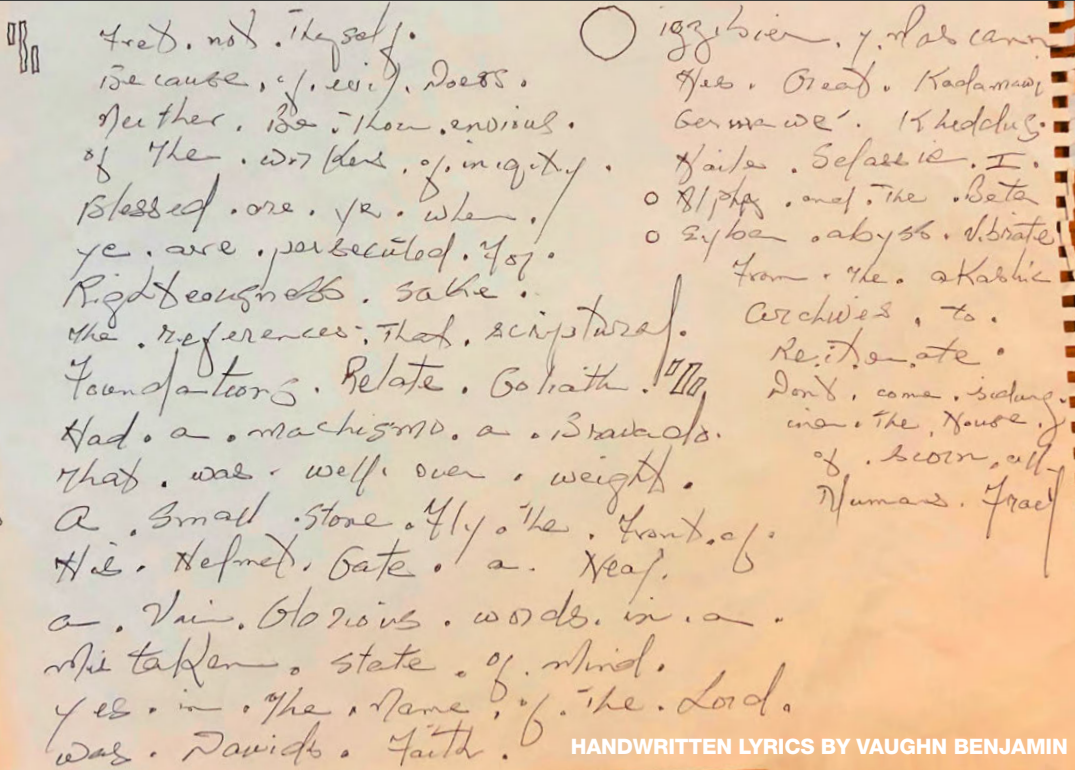 Fret. not. Thyself.
Because. of. evil. Doers.
Neither. Be. Thou. envious.
of The. workers. of. iniqity.
Blessed. are. ye. when.
ye. are. persecuted. For.
Righteougness. sake.
The. references. That. scriptural.
Foundations. Relate. Goliath.
Had. a. machismo. a. Bravado.
That. was. well. over. weight.
A. small. stone. Fly. The. Front. of.
His. Helmet. Gate. a.
a. Vain. Glorious. words. in. a.
Mistaken. state. of. Mind.
yes. in. The. Name. of. The. Lord.
was. Davids. Faith.
igzibier. y.
His. Great. Kadamawi
Germawe'. Kheddus.
Haile. Selassie. I.
Alpha. and. The. Beta
abyss. vibrate
From. The. akashic
archives. to.
Reiterate.
Don't. come.
ina. The. House.
of. scorn. all.
Humans. Frail
HANDWRITTEN LYRICS BY VAUGHN BENJAMIN